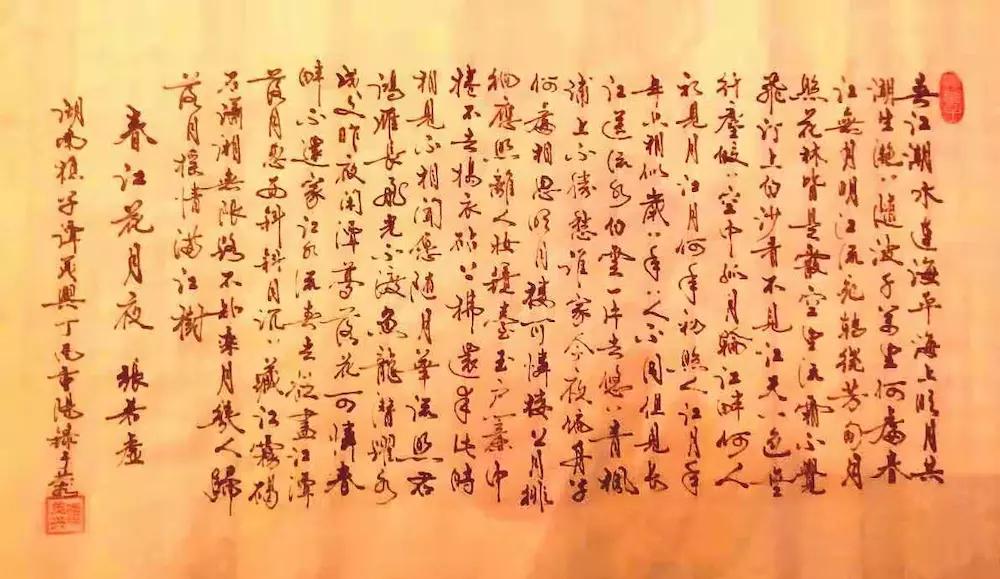 春江潮水連海平海上明月共
潮生灩〻隨波千萬里何處春
江無月明江流宛轉繞芳甸月
照花林皆是霰空里流霜不覺
飛汀上白沙看不見江天一色無
纤塵皎〻空中孤月輪江畔何人
初見月江月何年初照人江月年
年只相似歲〻年人不同但見長
江送流水白雲一片去悠〻青楓
浦上不勝愁誰家今夜扁舟子
何處相思明月樓可憐樓上月徘
徊應照離人妝鏡臺玉戶簾中
捲不去搗衣砧上拂還來此時
相見不相聞愿隨月華流照君
鴻雁長飛光不度魚龍潛躍水
成文昨夜閑潭夢落花可憐春
畔不還家江水流春去欲盡江潭
落月思西斜斜月沉〻藏江霧碣
石瀟湘無限路不知乘月幾人歸
落月搖情滿江樹
春江花月夜 張若虛
湖南樵子譚英興丁酉重陽